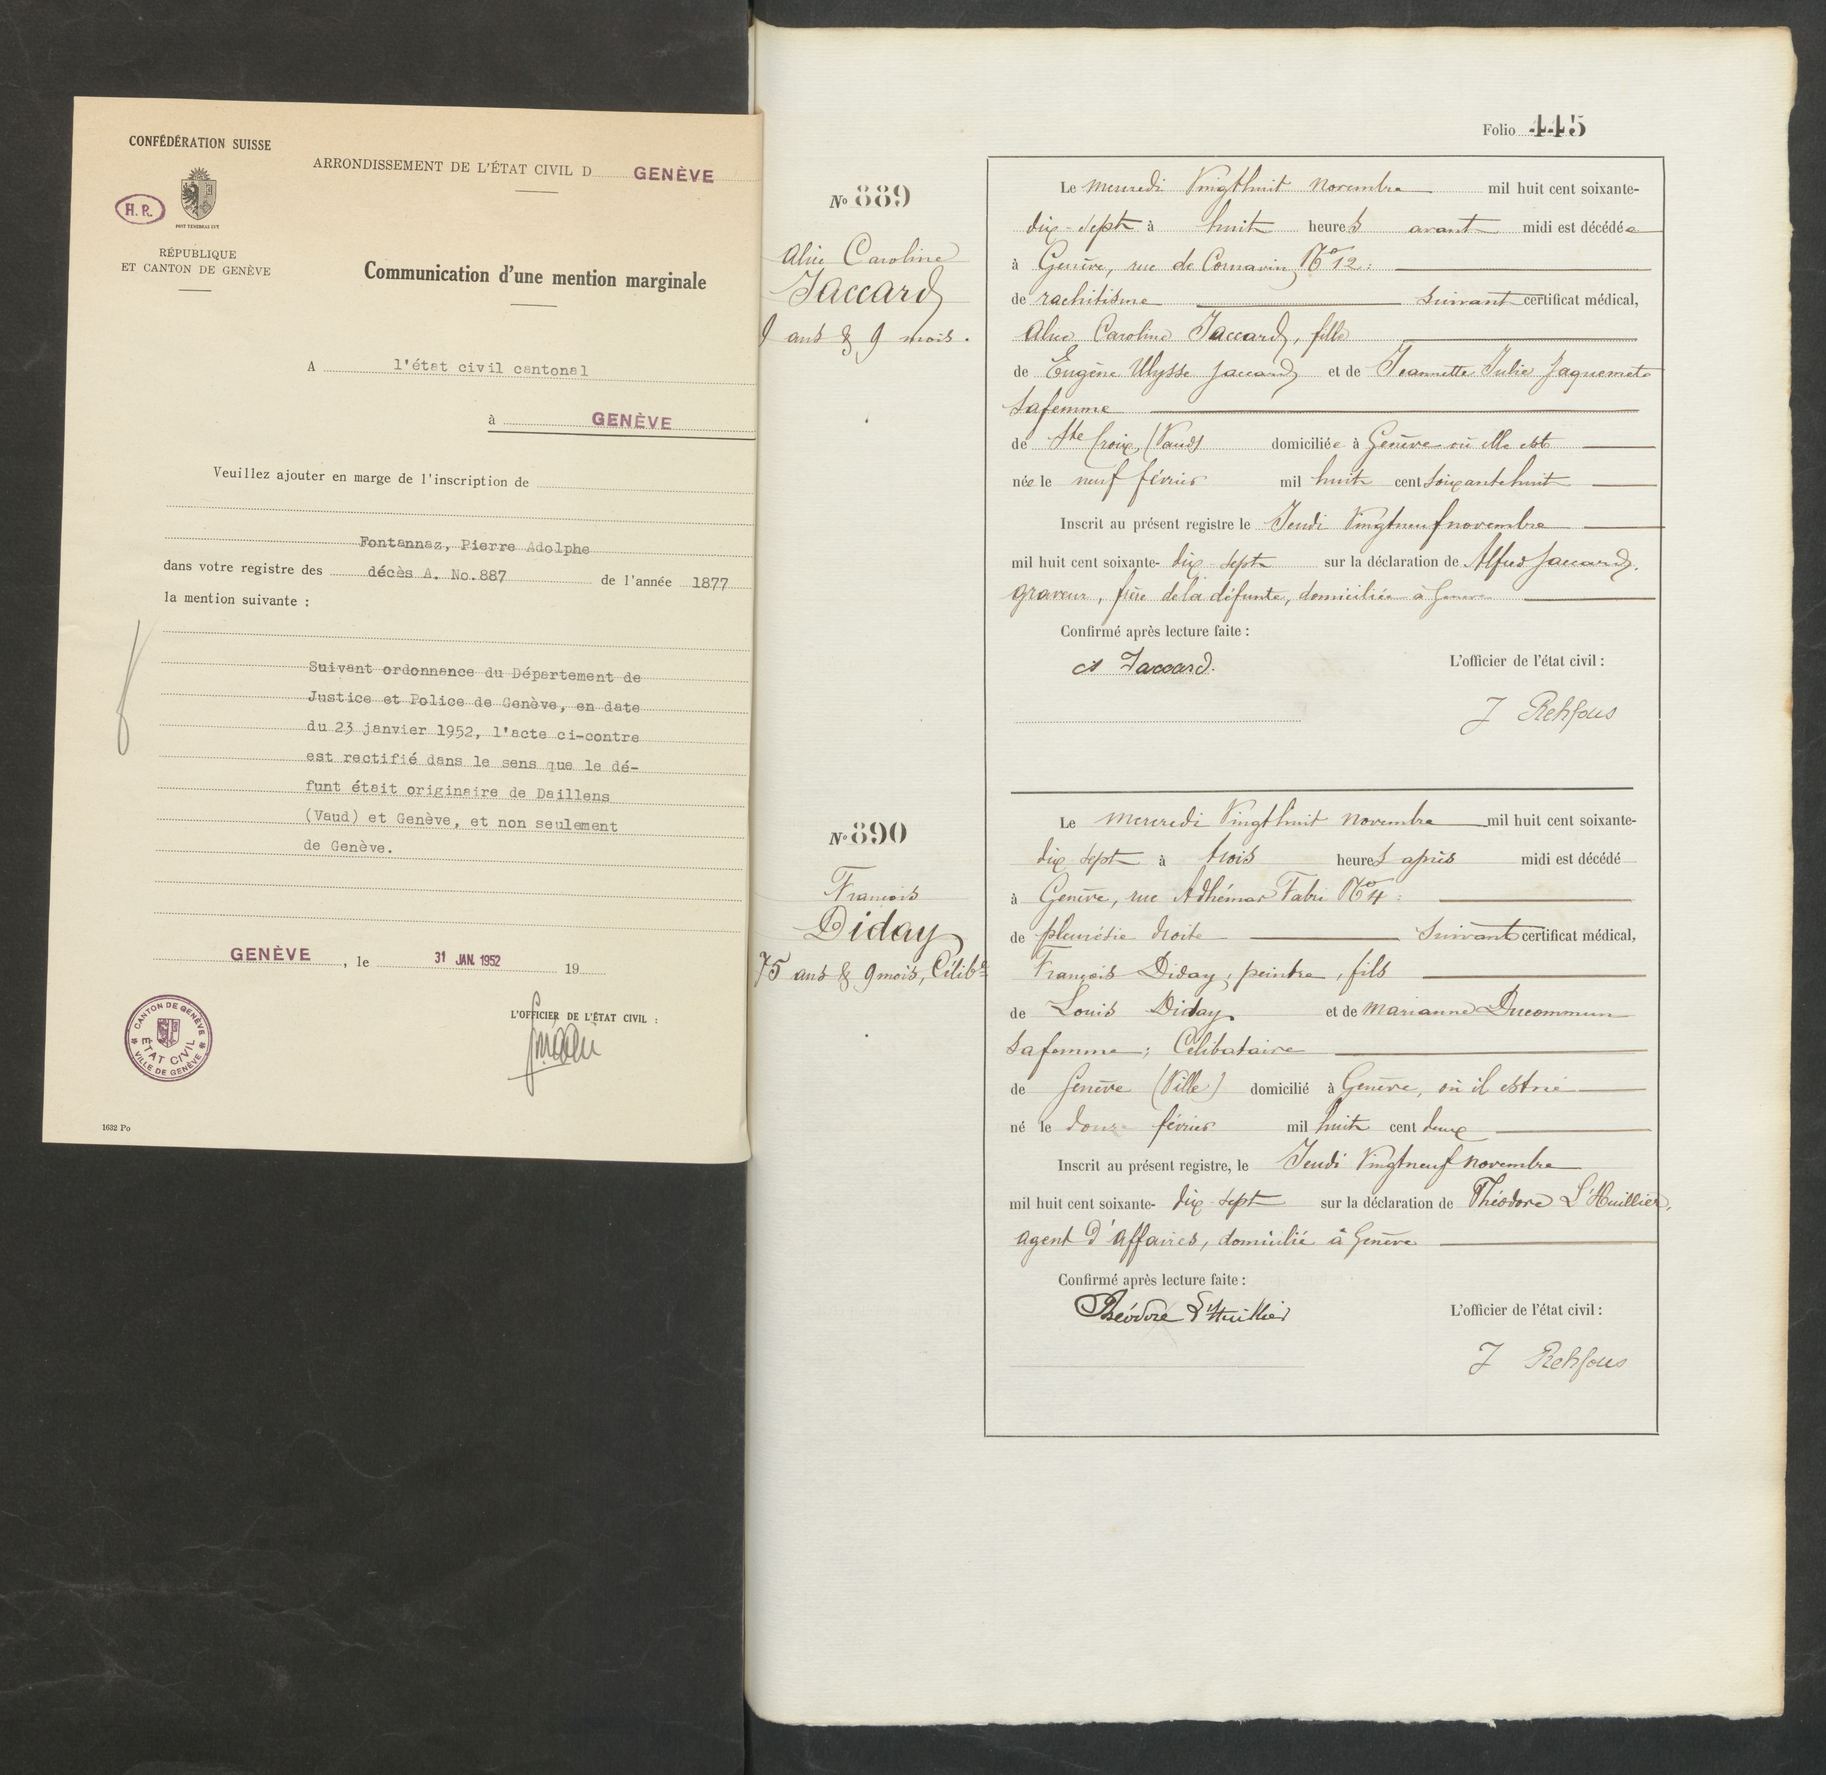 CONFÉDÉRATION SUISSE
ARRONDISSEMENT DE L'ÉTAT CIVIL D GENÈVE
H. R.
POST TENEBRAS LUX
RÉPUBLIQUE
ET CANTON DE GENÈVE
Communication d'une mention marginale
A l'état civil cantonal
à GENÈVE
Veuillez ajouter en marge de l'inscription de
Fontannaz, Pierre Adolphe
dans votre registre des décès A. No.887 de l'année 1877
la mention suivante :
Suivant ordonnance du Département de
Justice et Police de Genève, en date
du 23 janvier 1952, l'acte ci-contre
est rectifié dans le sens que le dé-
funt était originaire de Daillens
(Vaud) et Genève, et non seulement
de Genève.
GENÈVE , le 31 JAN. 1952 19
L'OFFICIER DE L'ÉTAT CIVIL :
CANTON DE GENÈVE
ÉTAT CIVIL
VILLE DE GENÈVE
1632 Po
Folio 445
No 889
Alice Caroline
Jaccard
9 ans & 9 mois.
Le mercredi Vingthuit novembre mil huit cent soixante-
dix-sept à huit heures avant midi est décédée
à Genève, rue de Cornavin No 12:
de rachitisme suivant certificat médical,
Alice Caroline Jaccard, fille
de Eugène Ulysse Jaccard et de Jeannette Julie Jaquemet
sa femme
de Ste Croix (Vaud) domiciliée à Genève où elle est
née le neuf février mil huit cent soixantehuit
Inscrit au présent registre le Jeudi Vingtneuf novembre
mil huit cent soixante- dix-sept sur la déclaration de Alfred Jaccard,
graveur, frère de la défunte, domicilié à Genève
Confirmé après lecture faite :
A Jaccard.
L'officier de l'état civil :
J Rehfous
No 890
François
Diday
75 ans & 9 mois, Célibre
Le mercredi Vingthuit novembre mil huit cent soixante-
dix sept à trois heures après midi est décédé
à Genève, rue Adhémar Fabri No 4 :
de pleurésie droite suivant certificat médical,
François Diday, peintre, fils
de Louis Diday et de Marianne Ducommun
sa femme; Célibataire
de Genève (Ville) domicilié à Genève, où il est né
né le douze février mil huit cent deux
Inscrit au présent registre, le Jeudi Vingtneuf novembre
mil huit cent soixante- dix-sept sur la déclaration de Théodore L'Huillier,
agent d'affaires, domicilié à Genève
Confirmé après lecture faite :
Théodore L'Huillier
L'officier de l'état civil :
J Rehfous